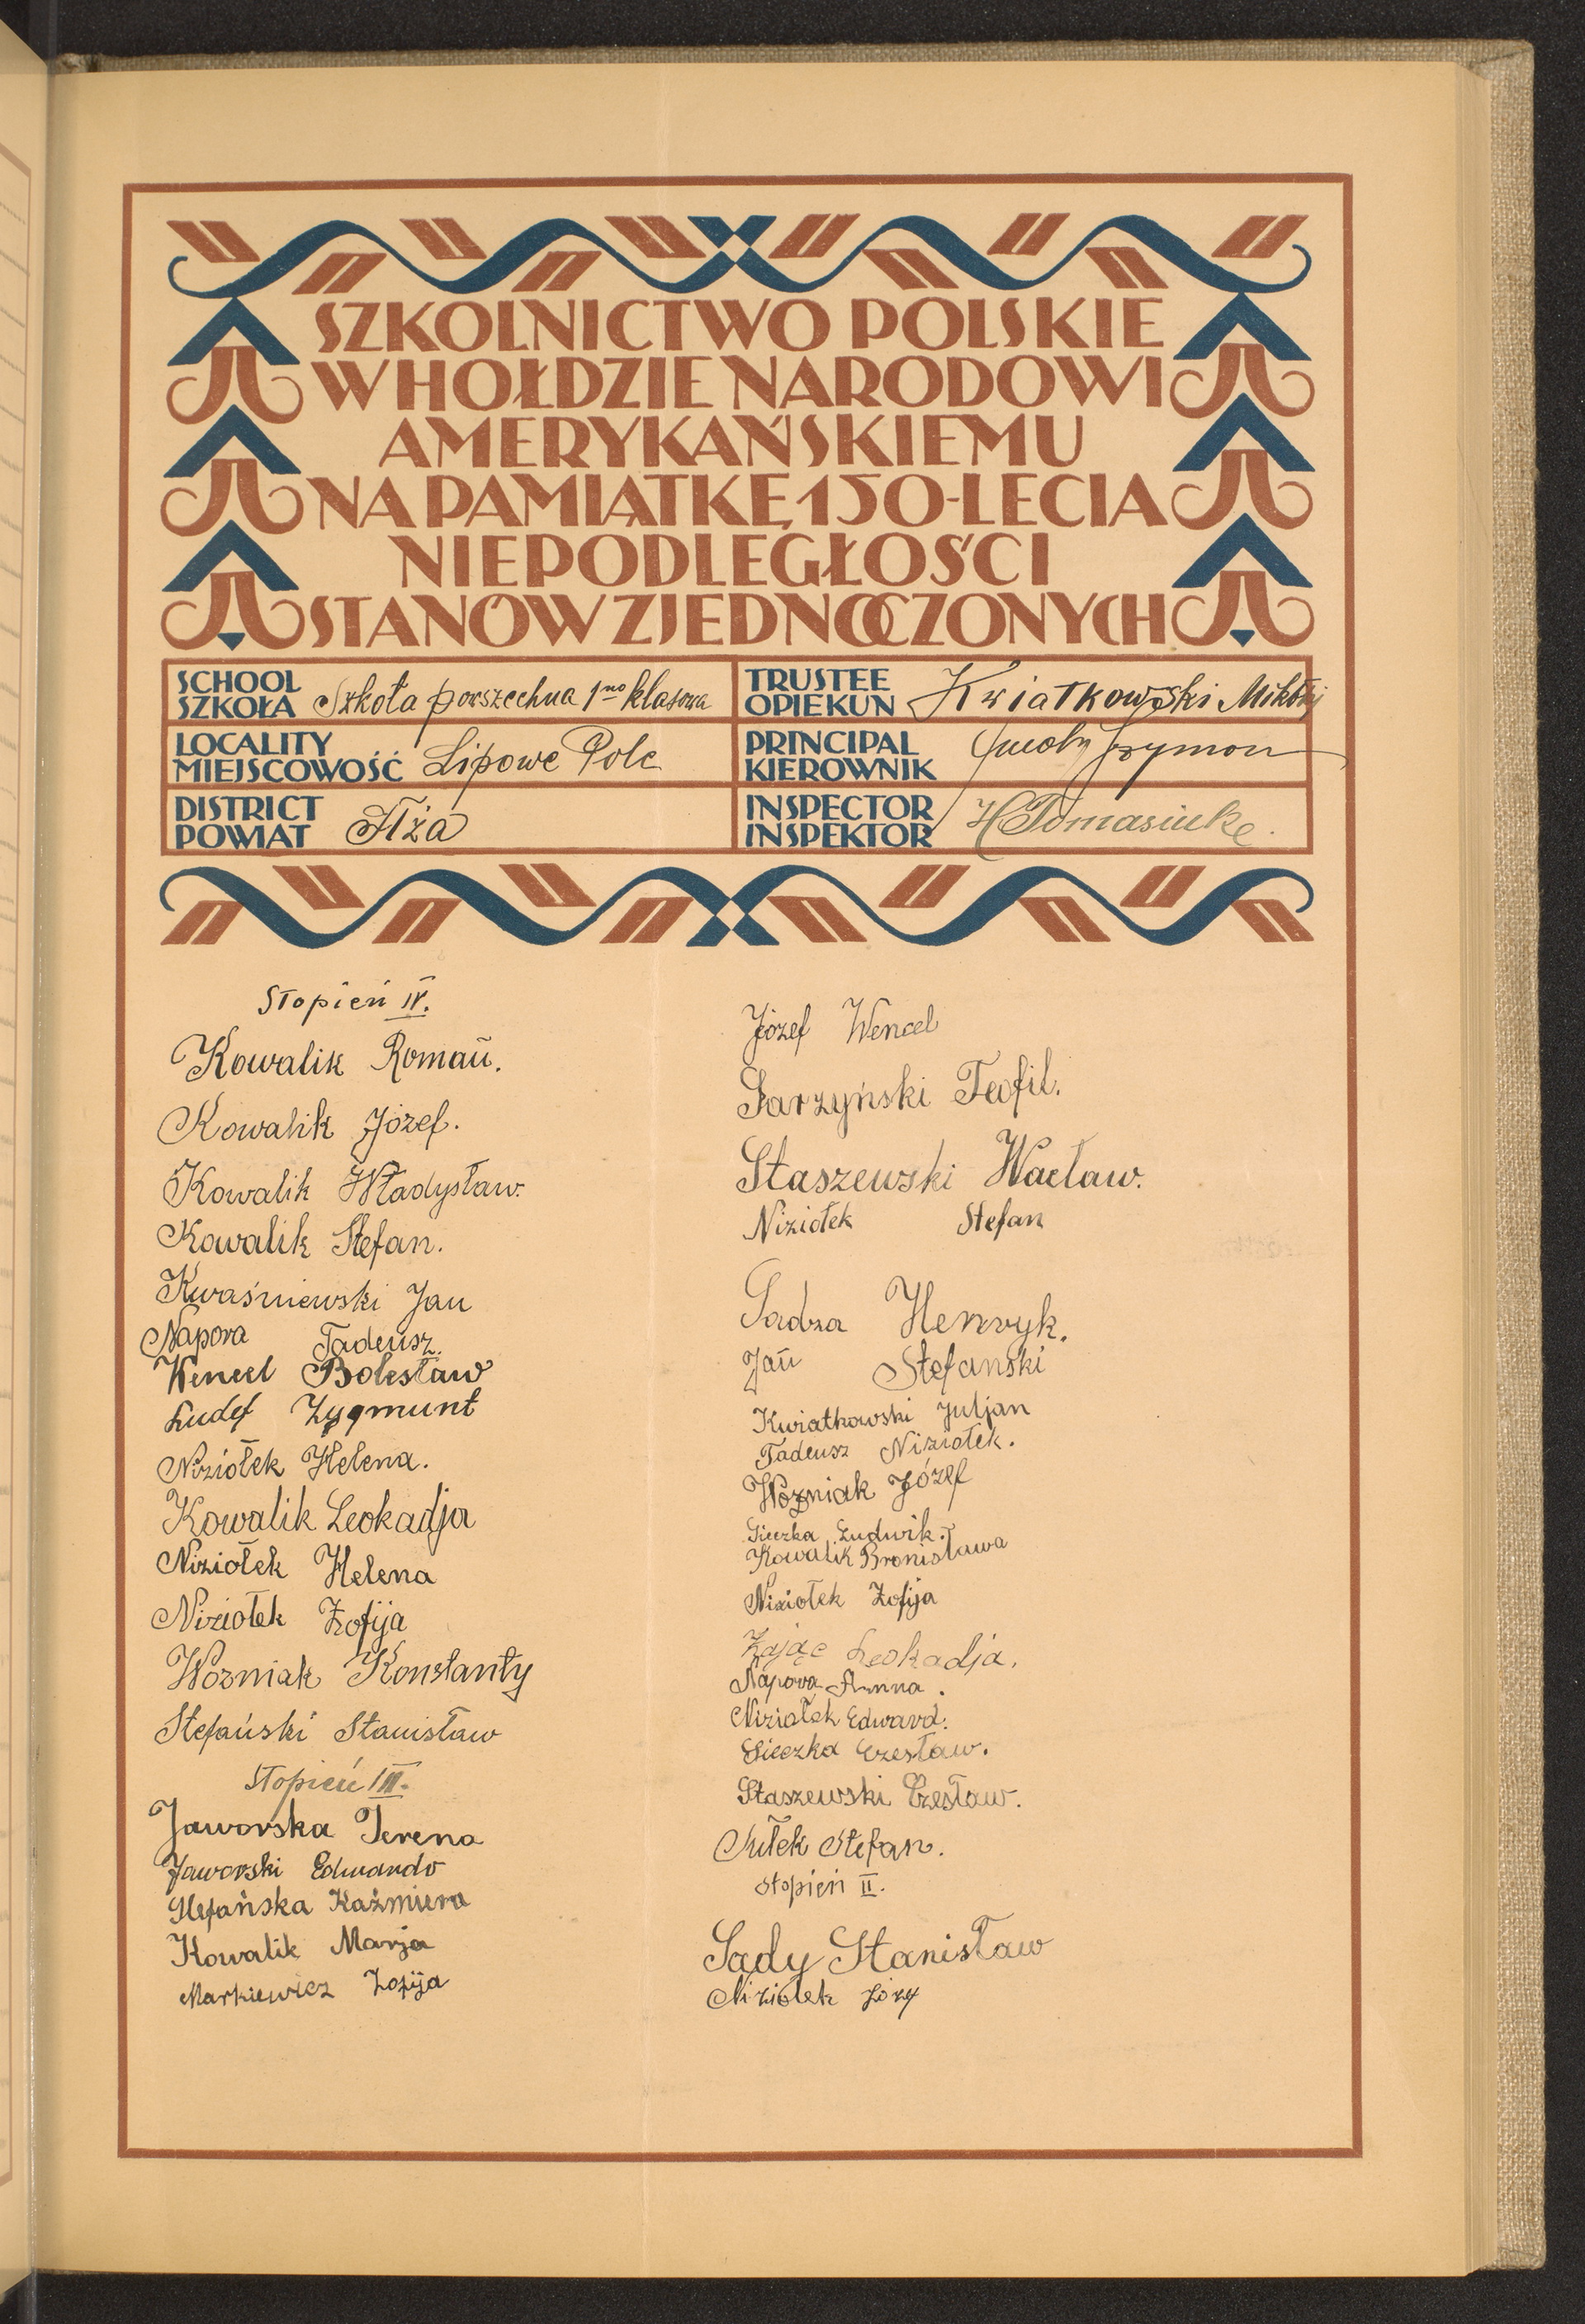 SZKOLNICTWO POLSKIE
W HOŁDZIE NARODOWI
AMERYKAŃSKIEMU
NA PAMIĄTKĘ 150-LECIA
NIEPODLEGŁOŚCI
STANÓW ZJEDNOCZONYCH
SCHOOL
SZKOŁA Szkoła powszechna 1no klasowa
LOCALITY
MIEJSCOWOŚĆ Lipowe Pole
DISTRICT
POWIAT Iłża
TRUSTEE
OPIEKUN Kwiatkowski Mikołaj
PRINCIPAL
KIEROWNIK Szymon
INSPECTOR
INSPEKTOR H Tomasiuke
Stopień IV.
Kowalik Romań.
Kowalik Józef.
Kowalik Władysław.
Kowalik Stefan.
Kwaśniewski Jan
Napora Tadeusz.
Wencel Bolesław
Zygmunt
Niziołek Helena.
Kowalik Leokadja
Niziołek Helena
Niziołek Zofija
Wozniak Konstanty
Stefański Stanisław
Stopień III.
Jaworska Irena
Jaworski Edwardo
Stefańska Kaźmiera
Kowalik Marja
Markiewicz Zofija
Józef Wencel
Sarzyński Teofil.
Staszewski Wacław.
Niziołek Stefan
Sadza Henryk.
Jań Stefanski
Kwiatkowski Juljan
Tadeusz Niziołek.
Woźniak Józef
Sieczka Ludwik.
Kowalik Bronisława
Niziołek Zofija
Zając Leokadja.
Napora Anna.
Niziołek Edward.
Sieczka Czesław.
Staszewski Czesław.
Sułek Stefan.
Stopień II.
Sady Stanisław
Niziołek Józef